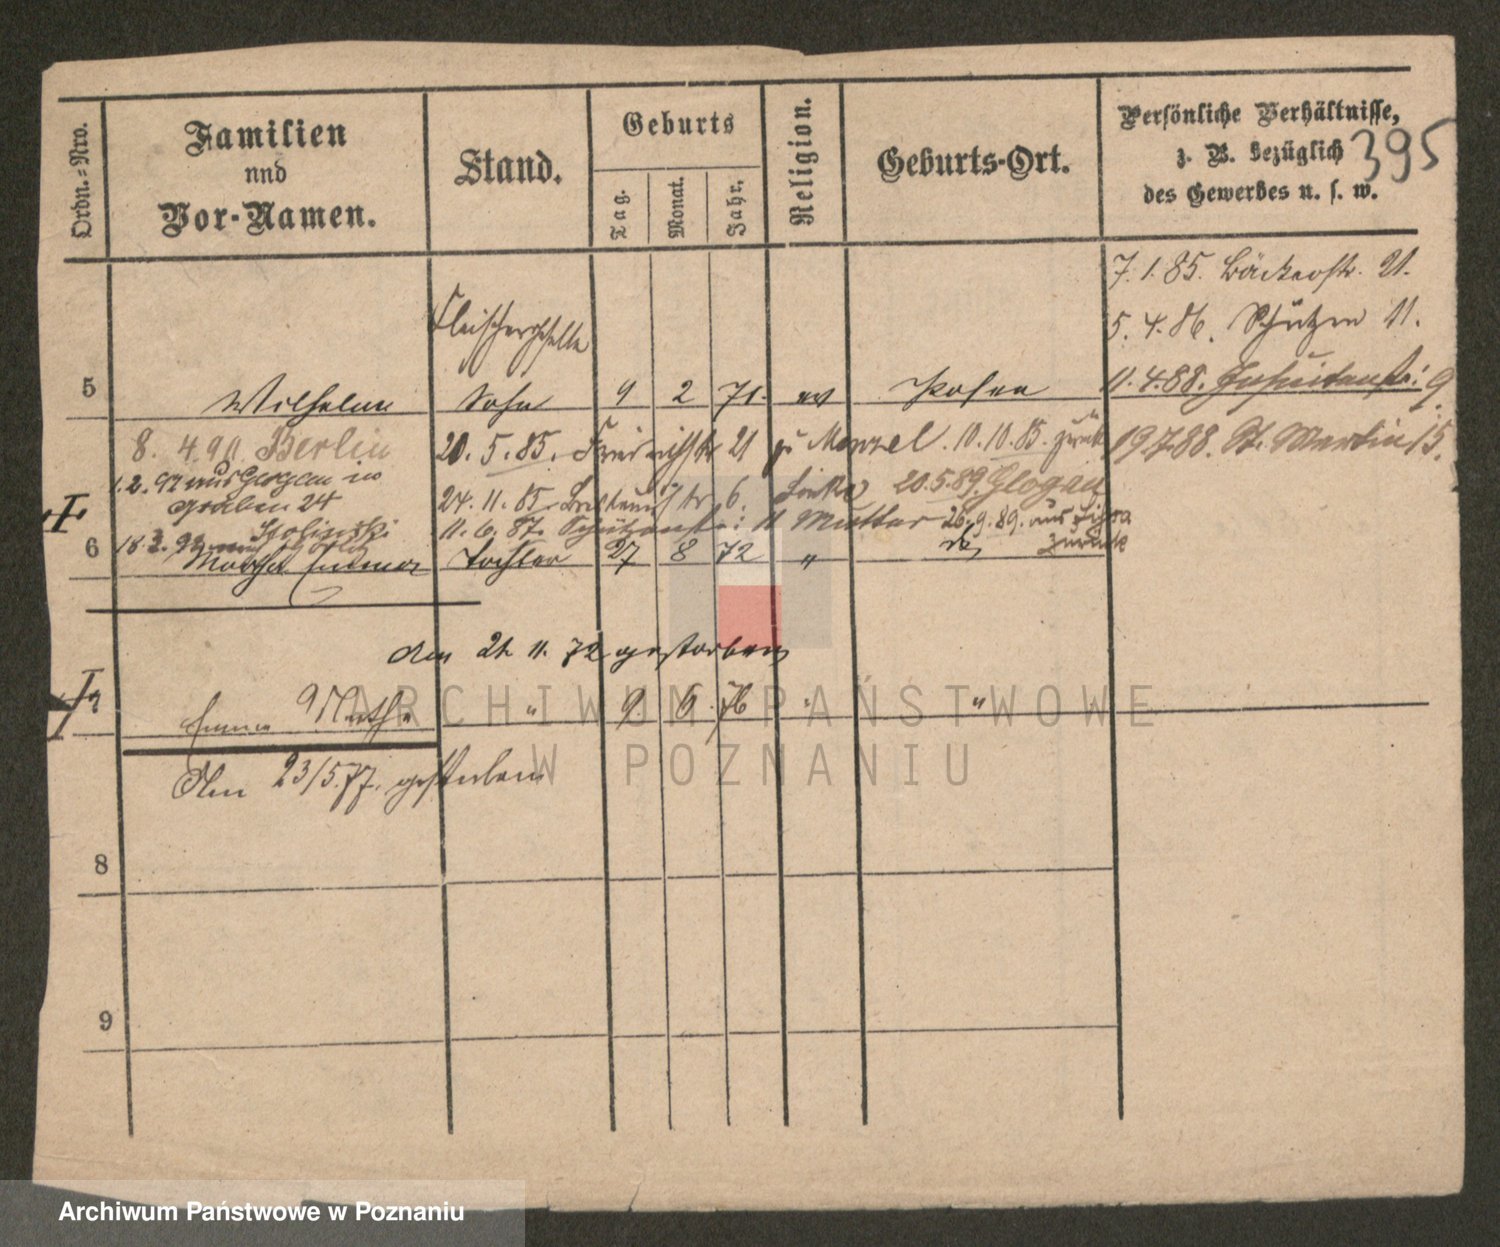 Ordn.-Nro.
Familien
und
Vor-Namen.
Stand.
Geburts
Tag.
Monat.
Jahr.
Religion.
Geburts-Ort.
Persönliche Verhältnisse,
z. B. bezüglich
des Gewerbes u. s. w.
395
7.1.85. Bäckerstr. 21.
5.4.86. Schützen 11.
11.4.88. Jesuitenstr: 9.
Fleischergeselle
5 Wilhelm Sohn 9 2 71. ev Posen
19.7.88. St. Martin 15.
8. 4.90. Berlin
20.5.85. Friedrichstr 21 zu Menzel. 10.10.85. zurück
1.2.92 aus Glogau in
Graben 24
24.11.85. 6. 20.5.89. Glogau
11.6.87. Schützenstr: 11 Mutter 26.9.89. aus Lissa
zurück
18.3.92
6 Martha Emma Tochter 27 8 72 "
den 21. 11. 72 gestorben
Emma Martha " 9 6 76 " "
Den 23/5.77. gestorben
8
9
ARCHIWUM PAŃSTWOWE
W POZNANIU
Archiwum Państwowe w Poznaniu